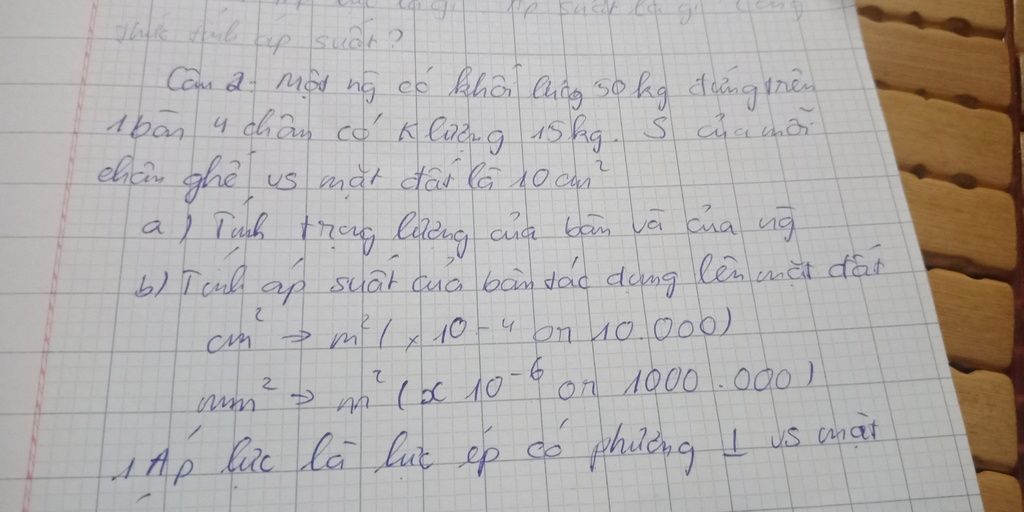 áp suất là gì công
thức tính áp suất?
Câu 2: Một ng̃ có khối lượng 50 kg đứng trên
1 bàn 4 chân có K lượng 15kg. S của mỗi
chân ghế vs mặt đất là 10 cm²
a) Tính trọng lượng của bàn và của ng̃
b) Tính áp suất của bàn tác dụng lên mặt đất
cm² → m² ( x 10-⁴ on 10.000)
mm² → m² (x 10-⁶ on 1000.000)
1 Áp lực là lực ép có phương ⊥ vs mặt